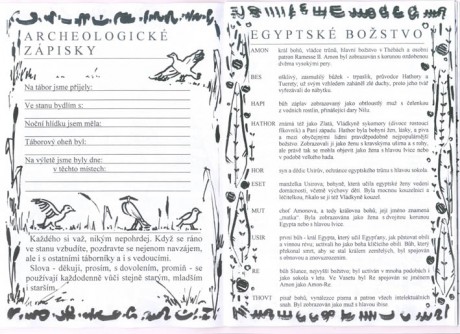 ARCHEOLOGICKÉ
ZÁPISKY
Na tábor jsme přijeli:
Ve stanu bydlím s:
Noční hlídku jsem měla:
Táborový oheň byl:
Na výletě jsme byly dne:
v těchto místech:
Každého si važ, nikým nepohrdej. Když se ráno
ve stanu vzbudíte, pozdravte se nejenom navzájem,
ale i s ostatními táborníky a i s vedoucími.
Slova - děkuji, prosím, s dovolením, promiň - se
používají každodenně vůči stejně starým, mladším
i starším.
EGYPTSKÉ BOŽSTVO
AMON král bohů, vládce trůnů, hlavní božstvo v Thébách a osobní
patron Ramesse II. Amon byl zobrazován s korunou ozdobenou
dvěma vysokými pery.
BES ošklivý, zazmalilý bůžek - trpaslík, průvodce Hathory a
Tuerety, už svým vzhledem zaháněl zlé duchy, proto jeho tvář
vyřezávali do nábytku.
HAPI bůh záplav zobrazovaný jako obtloustlý muž s čelenkou
z vodních rostlin, přinášející dary Nilu.
HATHOR známá též jako Zlatá, Vládkyně sykomory (divoce rostoucí
fíkovník) a Paní západu. Hathor byla bohyní žen, lásky, a piva
a mezi obyčejnými lidmi pravděpodobně nejpopulárnější
božstvo. Zobrazovali ji jako ženu s kravskýma ušima a s rohy,
ale právě tak se mohla objevit jako žena s hlavou lvice nebo
v podobě velkého hada.
HOR syn a dědic Usirův, ochránce egyptského trůnu s hlavou sokola.
ESET manželka Usirova, bohyně, která učila egyptské ženy vedení
domácnosti, včetně výchovy dětí. Byla mocnou kouzelnicí a
léčitelkou, říkalo se jí též Vládkyně kouzel.
MUT choť Amonova, a tedy královna bohů, její jméno znamená
„matka". Byla zobrazována jako žena s dvojitou korunou
Egypta nebo s hlavou lvice.
USIR první bůh - král Egypta, který učil Egypťany, jak pěstovat obilí
a vinnou révu; uctívali ho jako boha klíčícího obilí. Bůh, který
překonal smrt, aby se stal králem zemřelých, byl spojován
s obnovou a znovuzrozením.
RE bůh Slunce, nejvyšší božstvo; byl uctíván v mnoha podobách i
jako sokola v letu. Ve Vasetu byl Re spojován se jménem
Amon jako Amon-Re.
THOVT písař bohů, vynálezce písma a patron všech intelektuálních
snah. Byl zobrazován jako muž s hlavou ibise.